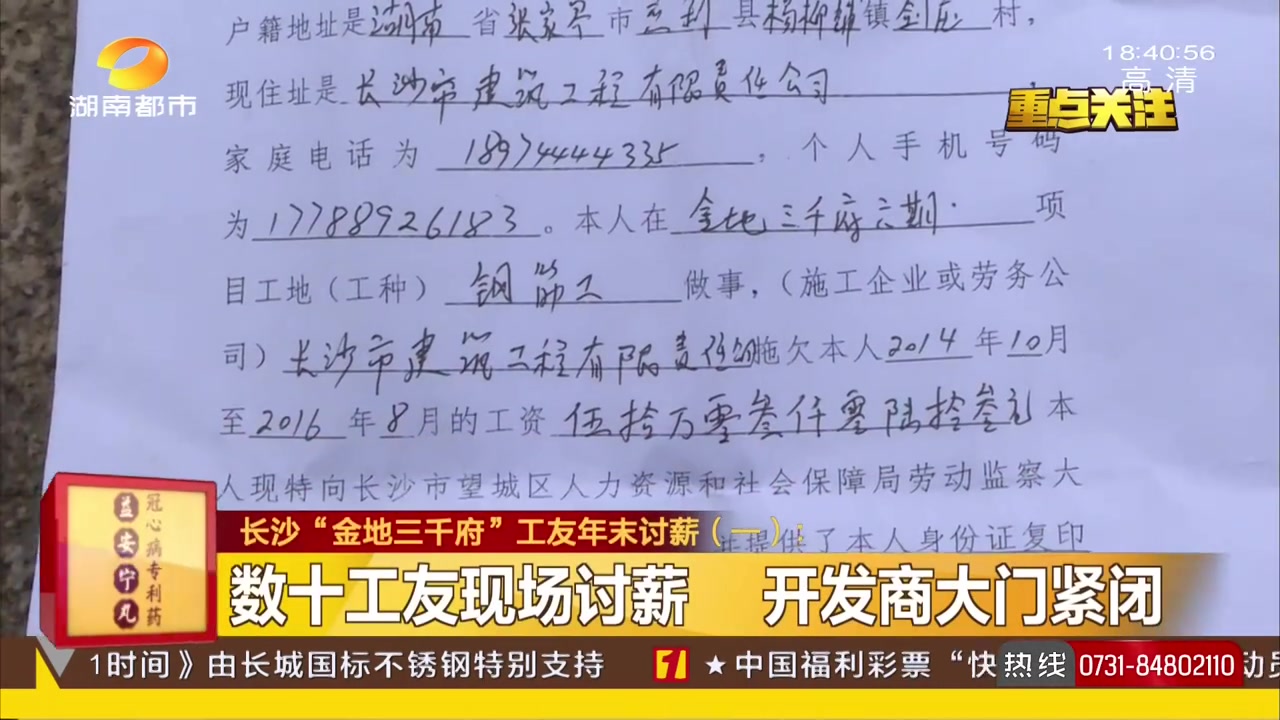 户籍地址是湖南省张家界市慈利县杨柳铺镇剑庄村，
18:40:56
高清
湖南都市
重点关注
现住址是长沙市建筑工程有限责任公司
家庭电话为18974444335，个人手机号码
为17788926183。本人在金地三千府六期项
目工地（工种）钢筋工做事，（施工企业或劳务公
司）长沙市建筑工程有限责任公司拖欠本人2014年10月
至2016年8月的工资伍拾万零叁仟零陆拾叁元本
人现特向长沙市望城区人力资源和社会保障局劳动监察大
提供了本人身份证复印
冠心病专利药
益安宁丸
长沙“金地三千府”工友年末讨薪（一）：
数十工友现场讨薪 开发商大门紧闭
1时间》由长城国标不锈钢特别支持 1 ★中国福利彩票“快
热线 0731-84802110
动员